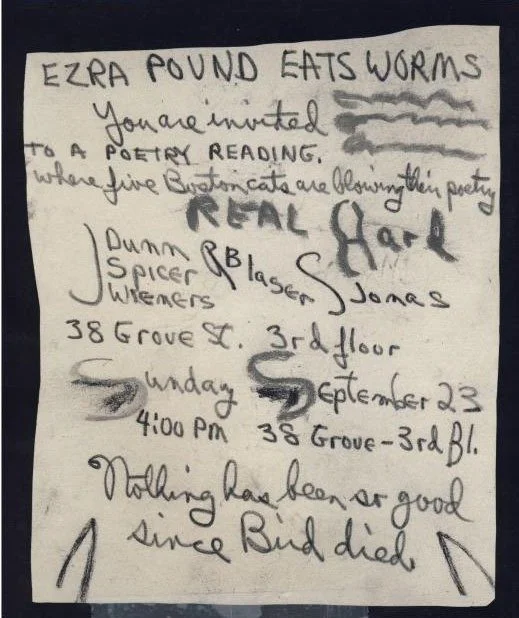 EZRA POUND EATS WORMS
You are invited
TO A POETRY READING.
where five Boston cats are blowing their poetry
REAL Hard
J Dunn R Blaser S Jonas
Spicer
Wieners
38 Grove St. 3rd floor
Sunday September 23
4:00 PM 38 Grove - 3rd Fl.
Nothing has been so good
since Bird died.